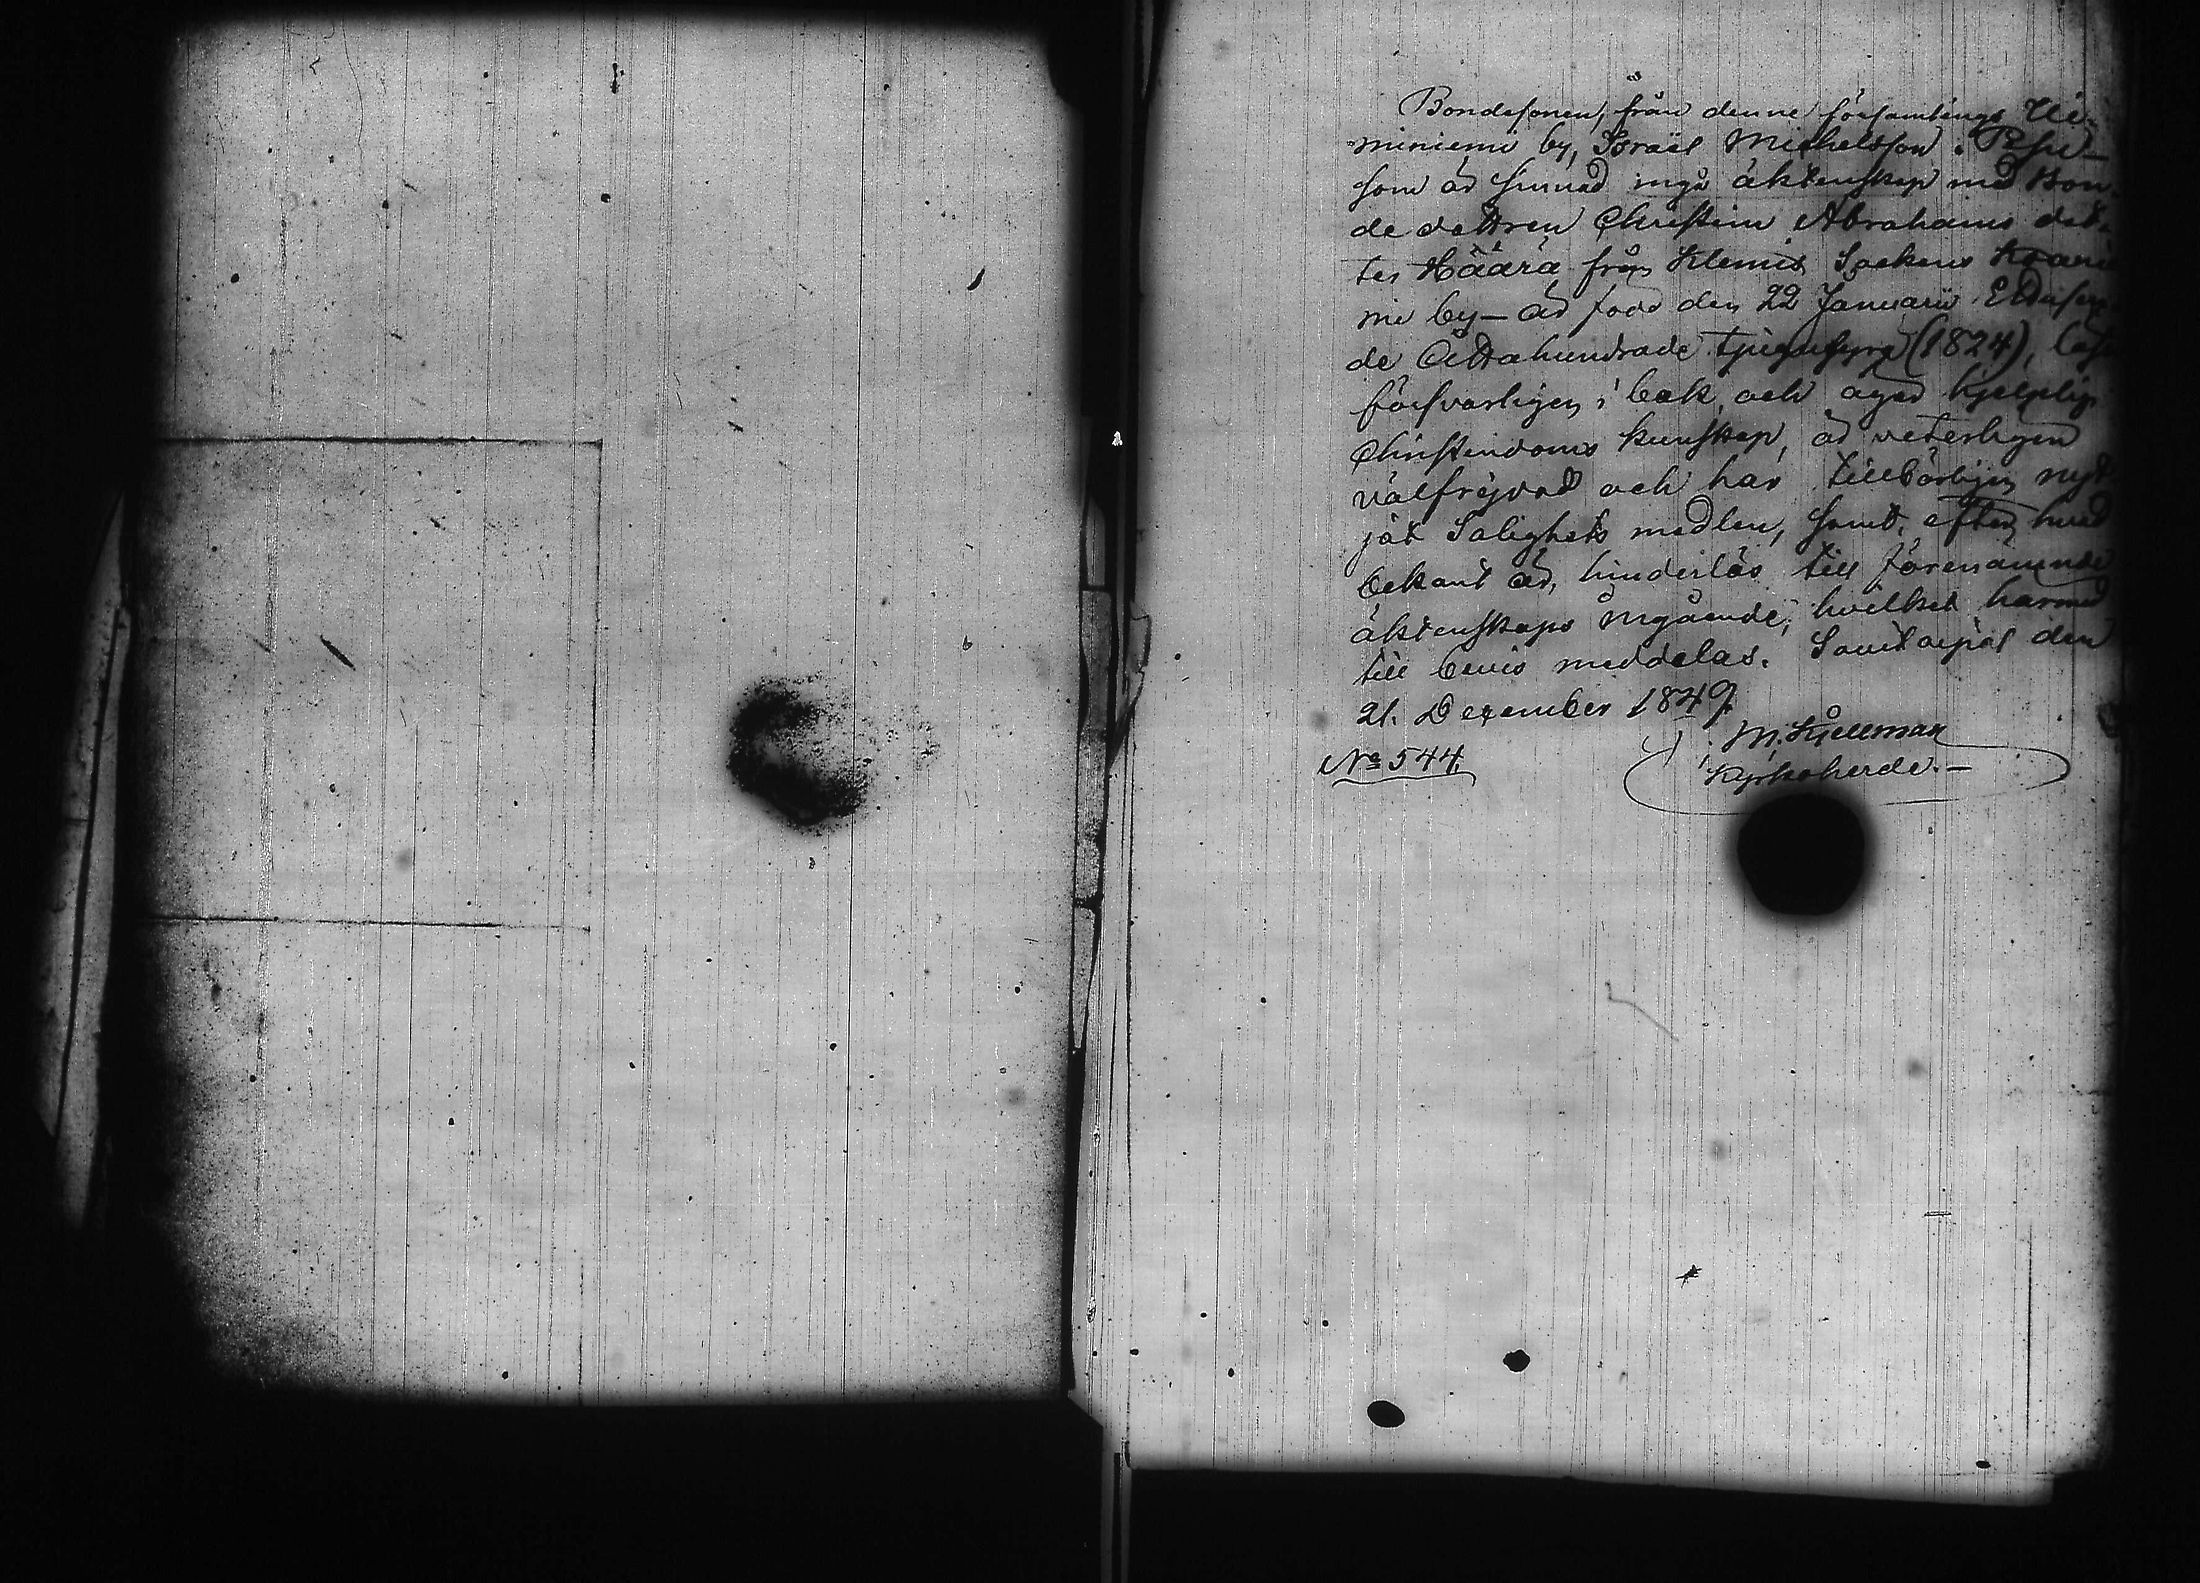 Bondesonen, från denne församlings Uei-
miniemi by, Israël Michelsson Pesu-
som är sinnad ingå äktenskap med Bon-
de dottren Christina Abrahams dot-
ter Häärä från Klemis Sockens
mi by — är född den 22 Januarii Ettusen-
de Åttahundrade tjugufyra (1824), läser
försvarligen i bok och äger hjelplig
Christendoms kunskap, är veterligen
välfrejdad och har tillbörligen nytt-
jat Salighets medlen, samt, efter hvad
bekant är, hinderlös till förenämnde
äktenskaps ingående; hvilket härmed
till bevis meddelas. Sodtavpal den
21. December 1849.
M. Kjellman
Kyrkoherde.—
No 544.